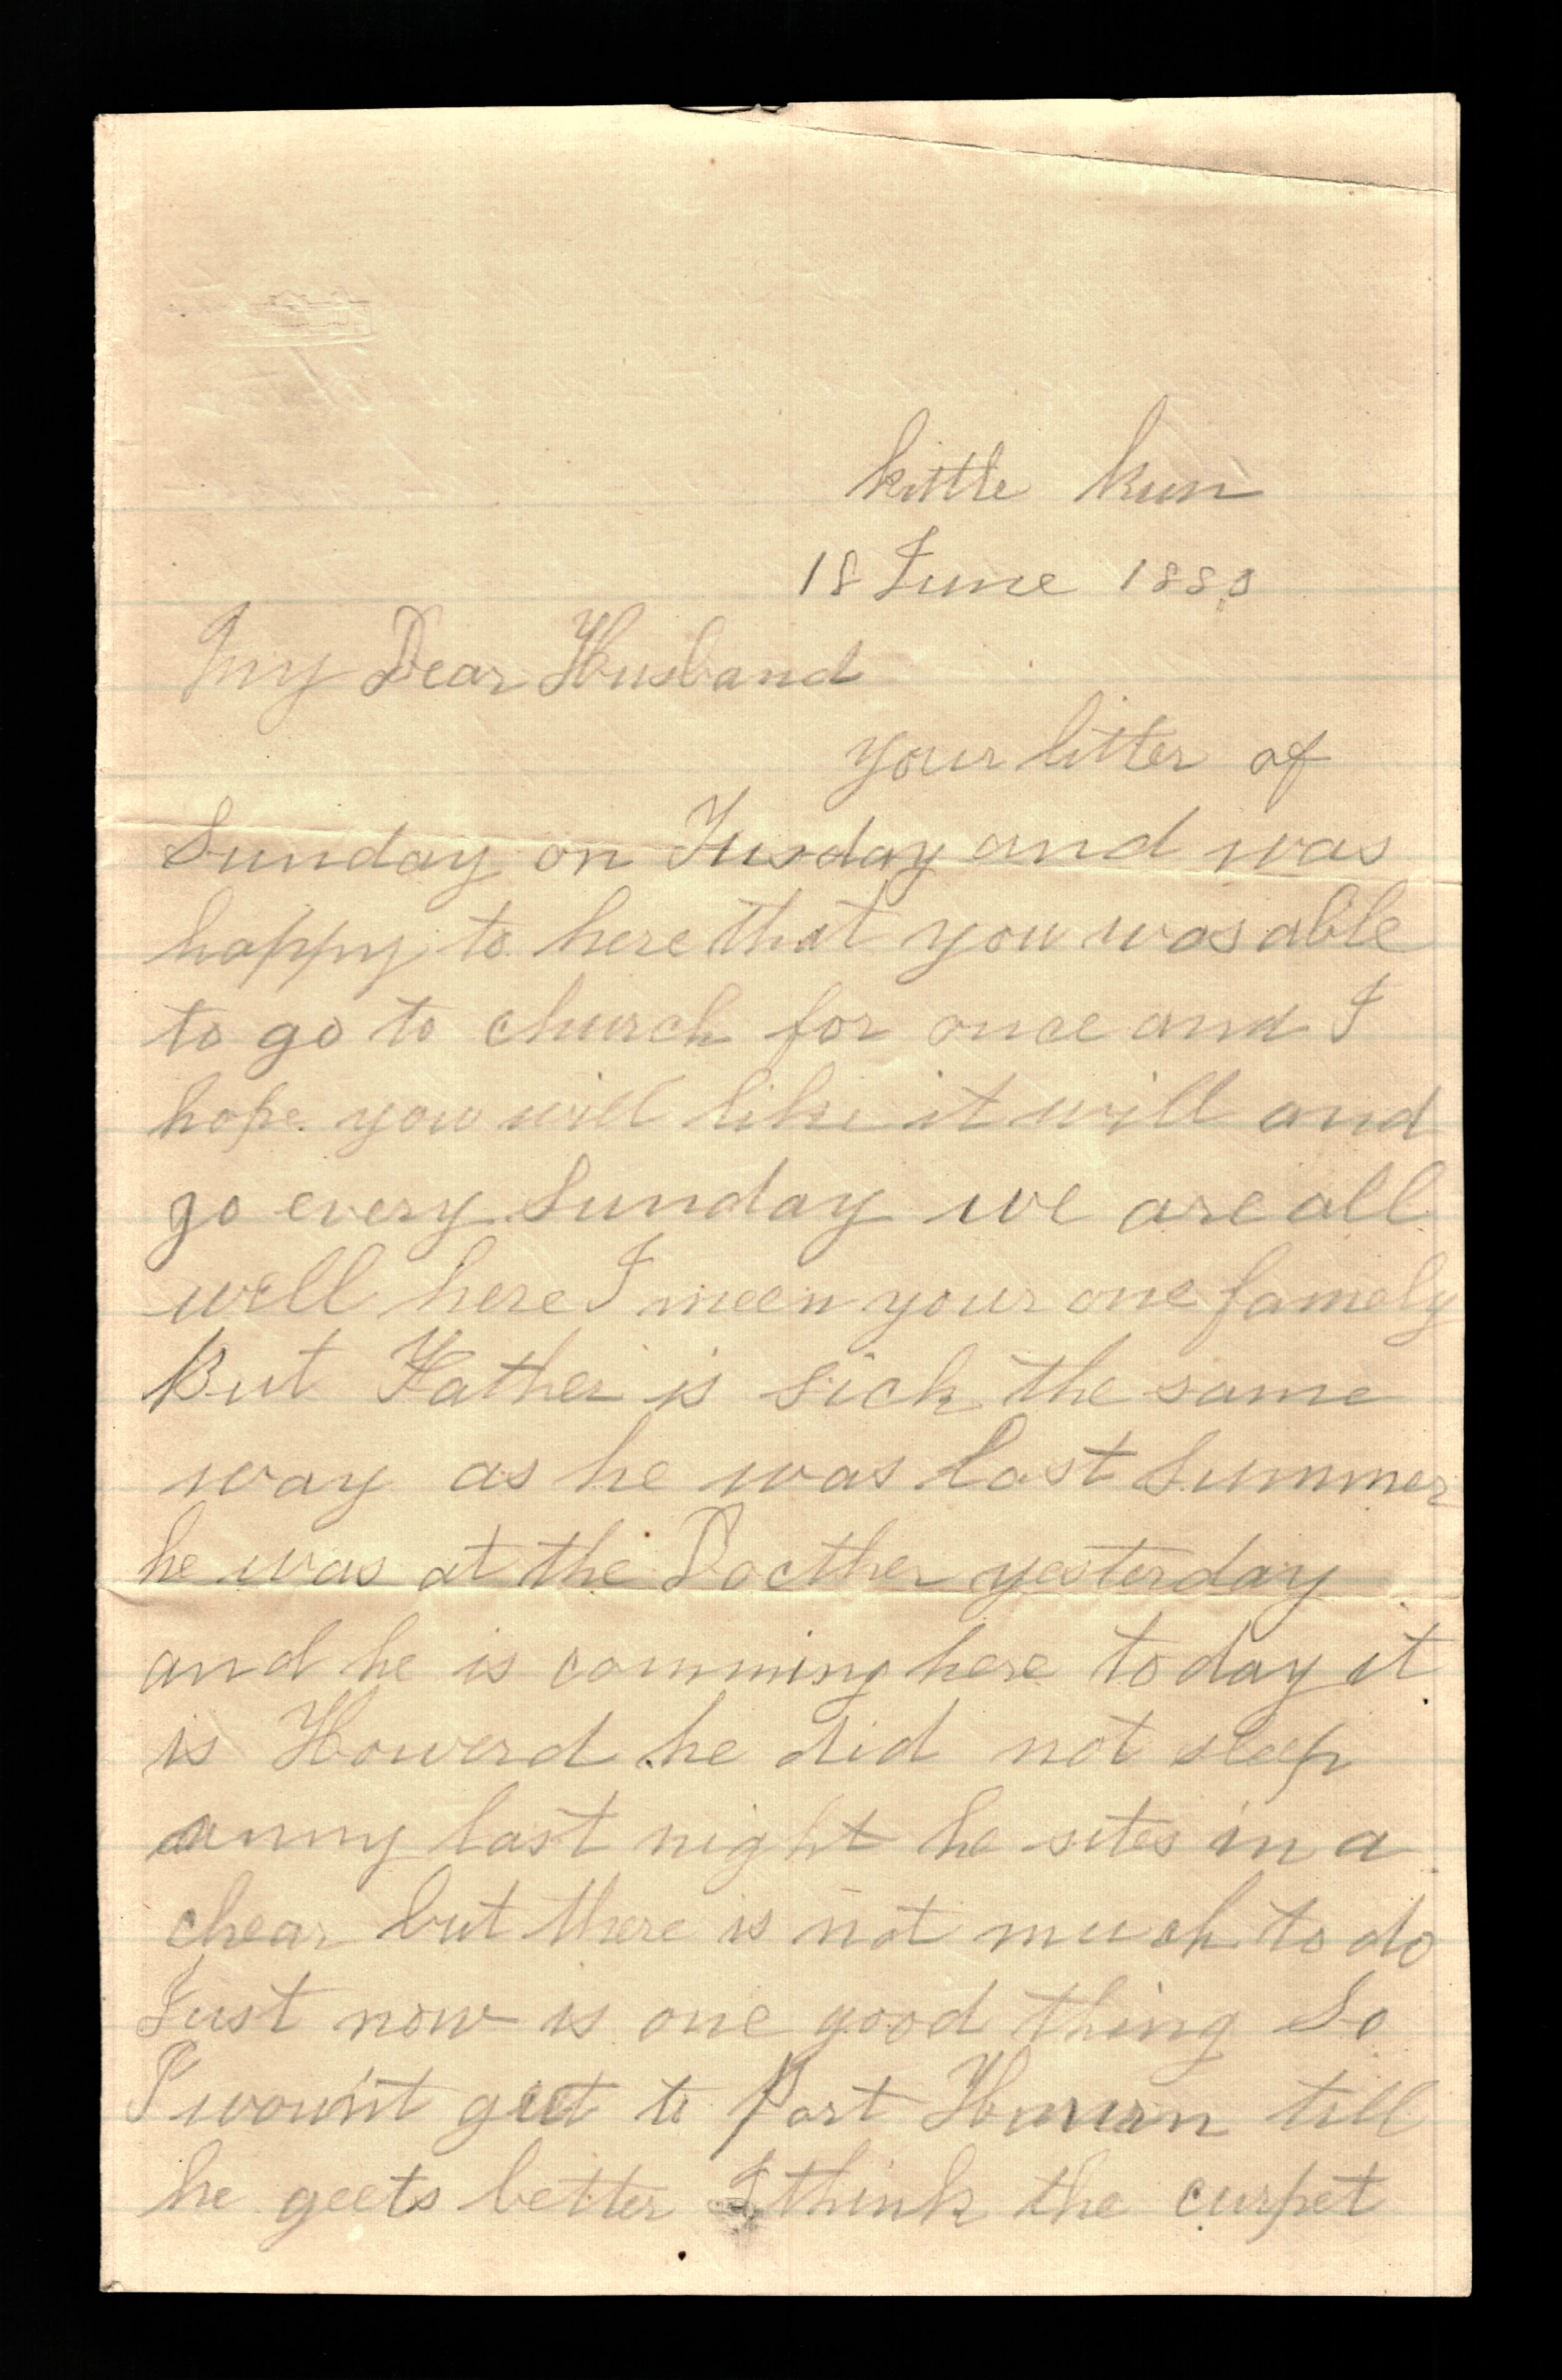 kittle kun
18 June 1880
My Dear Husband
your litter of
Sunday on Tusday and was
happy to here that you was able
to go to church for once and I
hope you will like it will and
go every Sunday we are all
well here I meen your one famely
But Father is sick the same
way as he was last Summer
he was at the Docther yesterday
and he is comming here to day it
is Howerd he did not sleep
anny last night he sites in a
chear but there is not much to do
Just now is one good thing So
I wount geet to Port Hurun till
he geets better I think the curpet